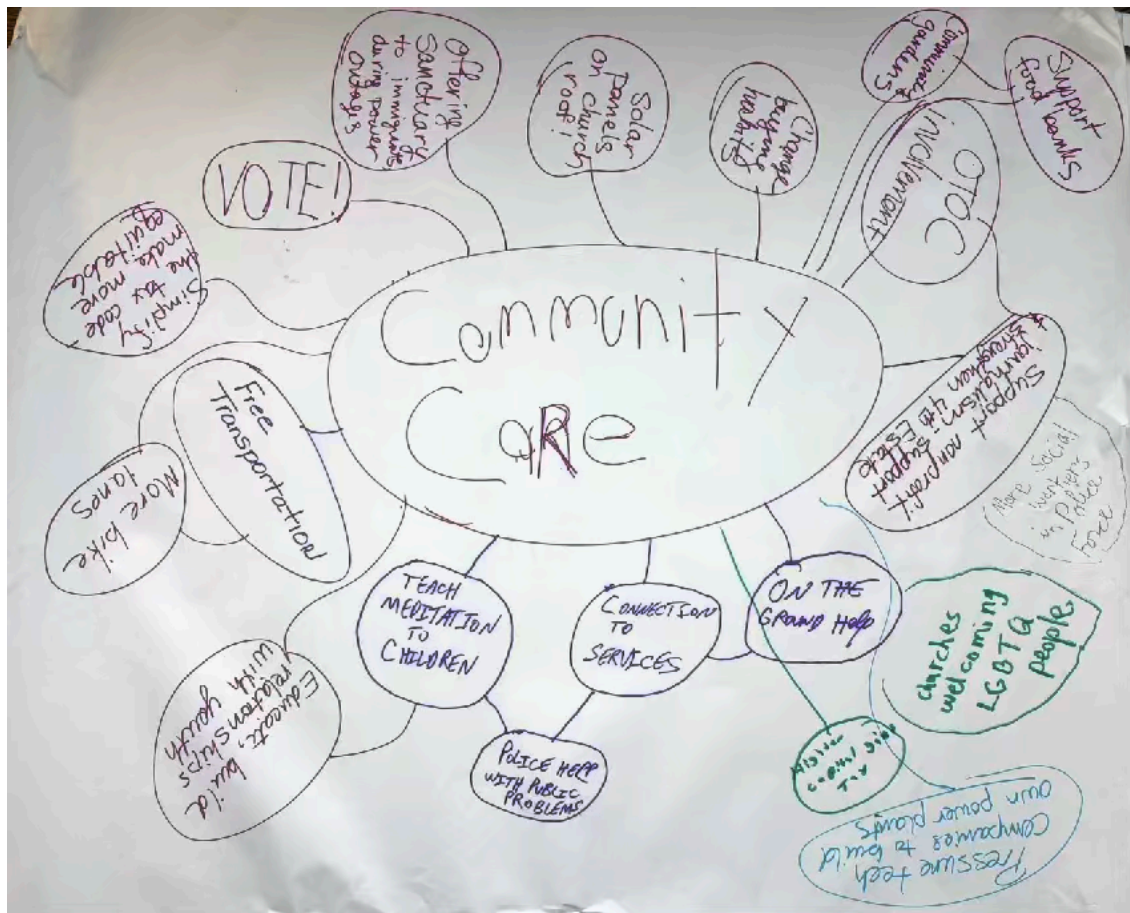 Community
Care
VOTE!
Offering
Sanctuary
to immigrants
during power
outages
Solar
panels
on church
roof!
Change
buying
habits
Community
gardens
Support
food banks
OTOC
involvement
* Support nonprofit
journalism: support
strengthen 4th Estate
More Social
work
in
Police
Force
churches
welcoming
LGBTQ
people
ON THE
GROUND HELP
CONNECTION
TO
SERVICES
TEACH
MEDITATION
TO
CHILDREN
POLICE HELP
WITH PUBLIC
PROBLEMS
Tax
Pressure tech
companies to build
own power plants
Educate, build
relationships
with youth
More bike
lanes
Free
TRANSPORTATION
Simplify
the tax code
make more
equitable